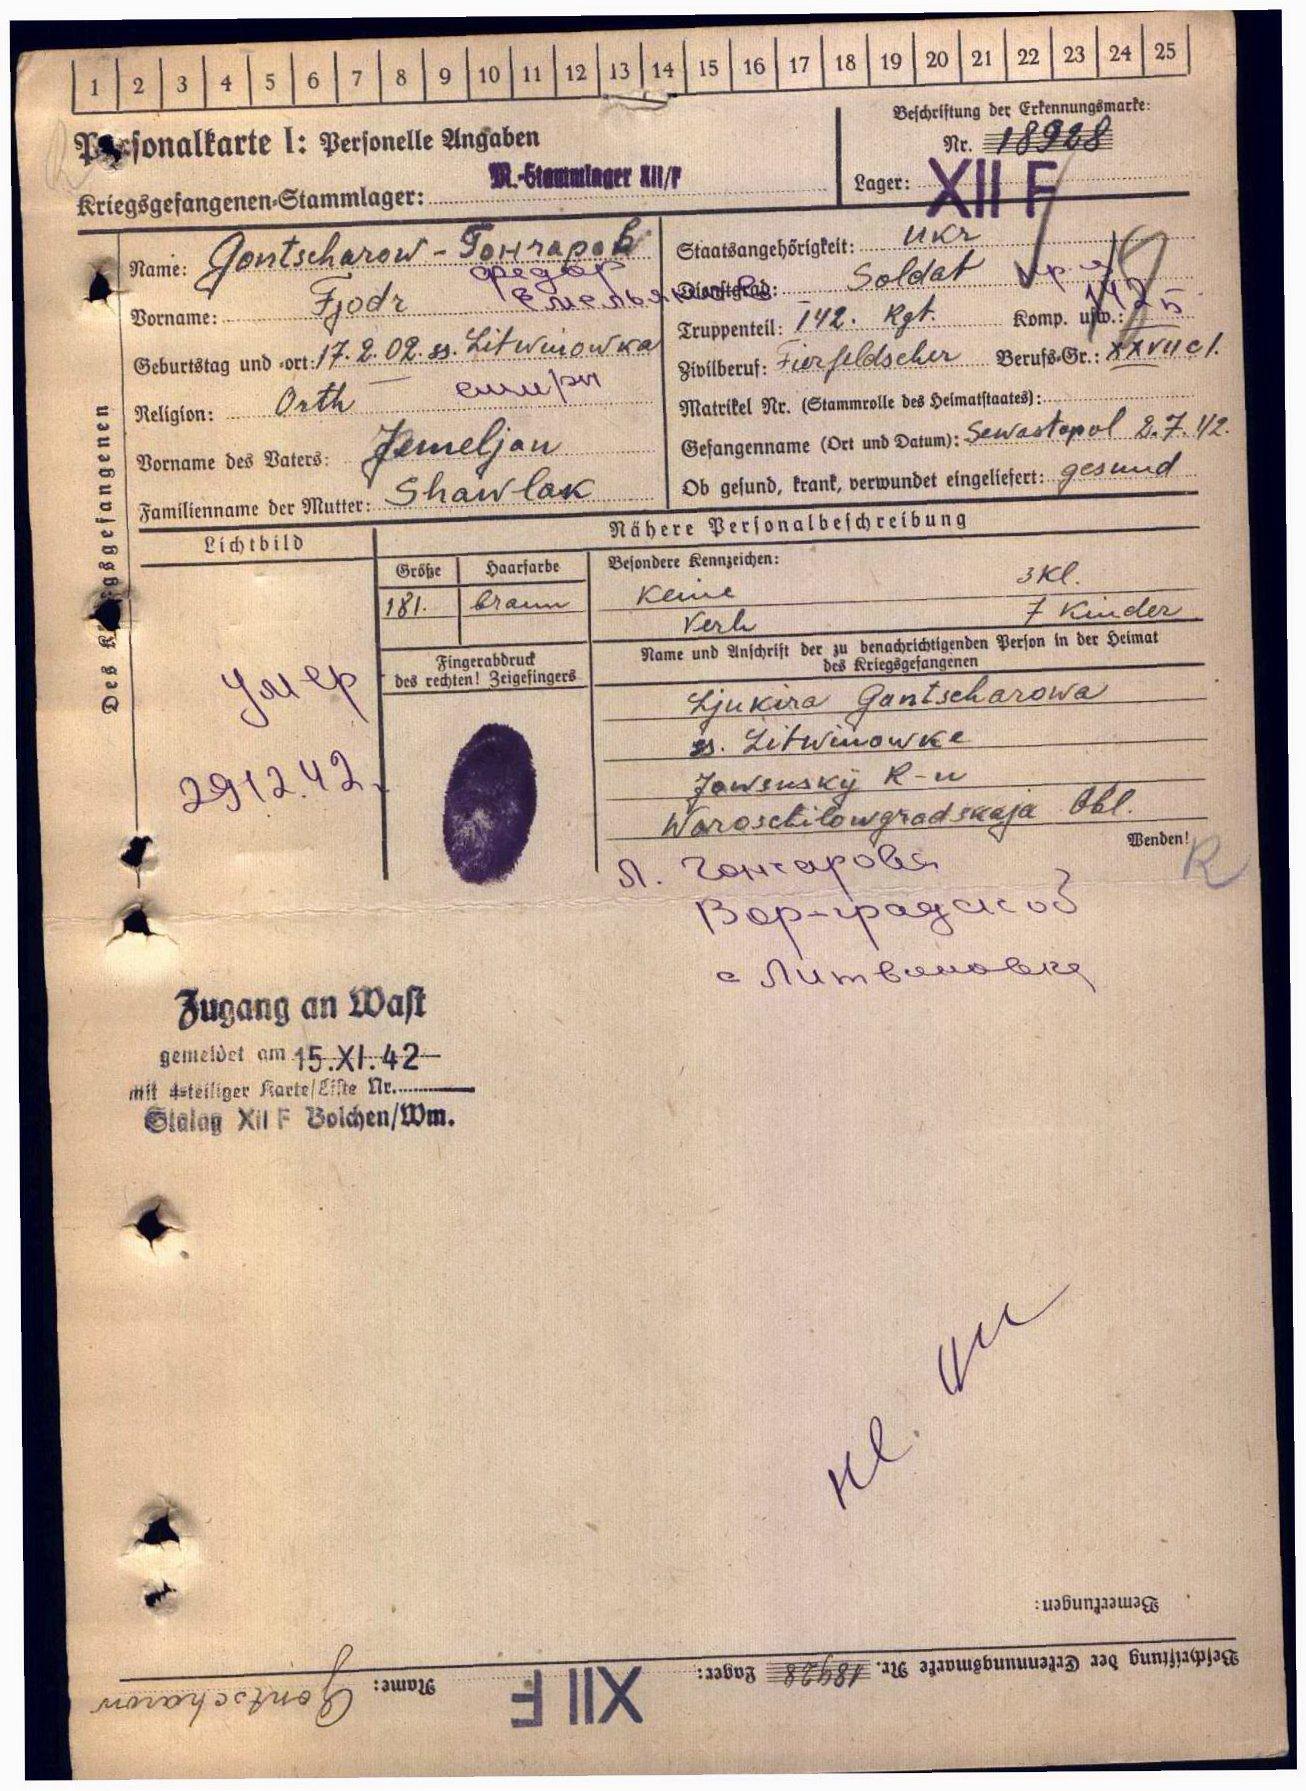 1 2 3 4 5 6 7 8 9 10 11 12 13 14 15 16 17 18 19 20 21 22 23 24 25
Personalkarte I: Personelle Angaben
Beschriftung der Erkennungsmarke:
Nr. 18928
Kriegsgefangenen-Stammlager: M.-Stammlager XII/F
Lager: XII F
Des Kriegsgefangenen
Name: Gontscharow - Гончаров
Федор
Vorname: Fjodr
Geburtstag und -ort: 17.2.02. ss. Litwinowka
Religion: Orth
Vorname des Vaters: Jemeljan
Familienname der Mutter: Shawlak
Staatsangehörigkeit: Ukr
Dienstgrad: Soldat
Truppenteil: 142. Rgt. Komp. usw.:
Zivilberuf: Fierfeldscher Berufs-Gr.: XXVII c 1.
Matrikel Nr. (Stammrolle des Heimatstaates):
Gefangenname (Ort und Datum): Sewastopol 2.7.42.
Ob gesund, krank, verwundet eingeliefert: gesund
Lichtbild
Nähere Personalbeschreibung
Größe Haarfarbe
181. braun
Besondere Kennzeichen:
Keine 3 Kl.
Verh 7 Kinder
Fingerabdruck
des rechten! Zeigefingers
Name und Anschrift der zu benachrichtigenden Person in der Heimat
des Kriegsgefangenen
Ljukira Gantscharowa
ss. Litwinowke
Jowsuskÿ R-n
Waroschilowgradskaja Obl.
Wenden!
R
умер
29 12.42.
Л. Гончарова
Вор-градской
с Литвиновка
Zugang an Wast
gemeldet am 15.XI.42
mit 4-teiliger Karte/Liste Nr.
Stalag XII F Bolchen/Wm.
Bemerkungen:
Beschriftung der Erkennungsmarke Nr. 18928 Lager: XII F Name: Gontscharow